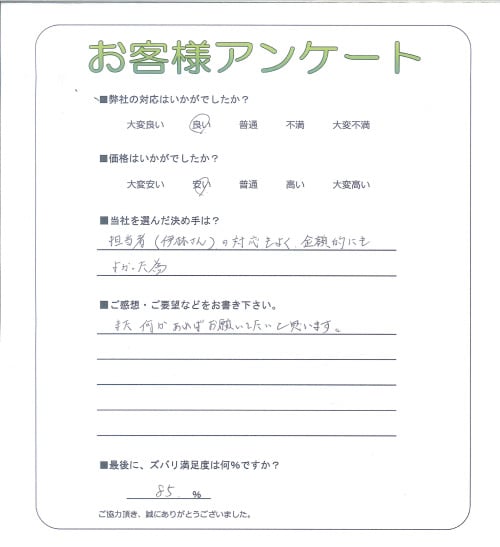 お客様アンケート
■弊社の対応はいかがでしたか？
大変良い 良い 普通 不満 大変不満
■価格はいかがでしたか？
大変安い 安い 普通 高い 大変高い
■当社を選んだ決め手は？
担当者(伊藤さん)の対応もよく、金額的にも
よかった為
■ご感想・ご要望などをお書き下さい。
また何かあればお願いしたいと思います。
■最後に、ズバリ満足度は何%ですか？
85 %
ご協力頂き、誠にありがとうございました。